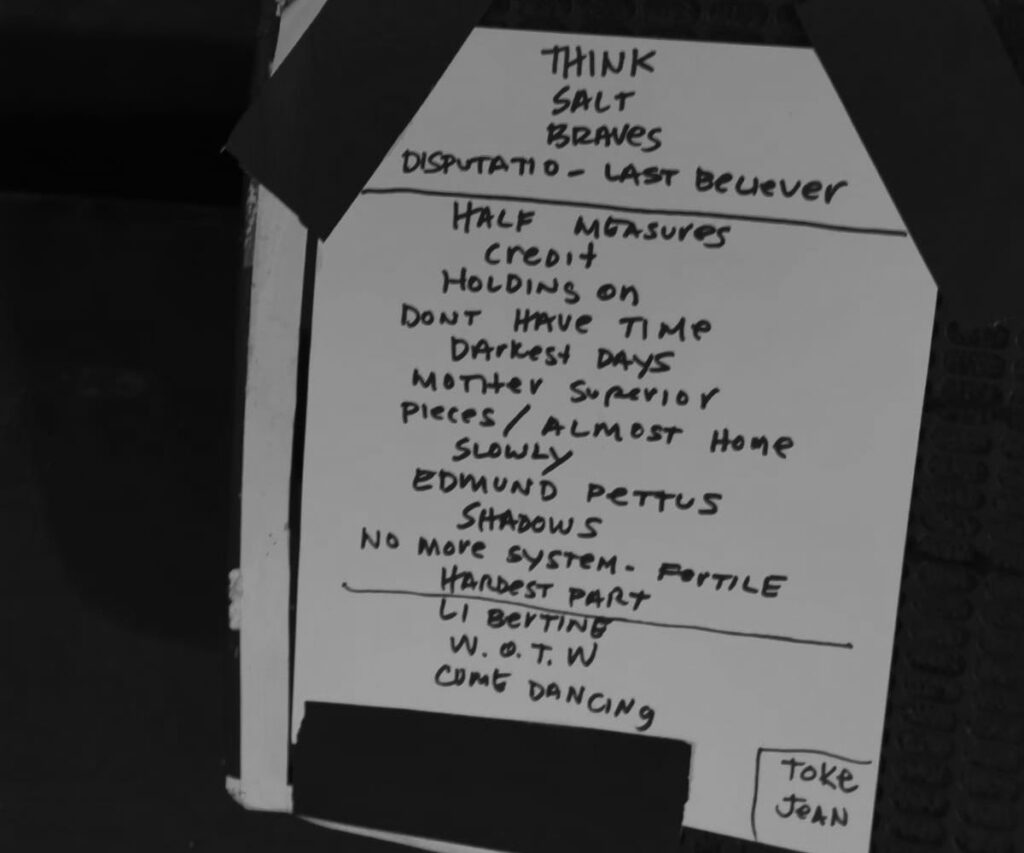 THINK
SALT
BRAVES
DISPUTATIO - LAST BELIEVER
HALF MEASURES
CREDIT
HOLDING ON
DONT HAVE TIME
DARKEST DAYS
MOTHER SUPERIOR
PIECES / ALMOST HOME
SLOWLY
EDMUND PETTUS
SHADOWS
NO MORE SYSTEM - FORTILE
HARDEST PART
LIBERTINE
W.O.T.W
COME DANCING
TOKE
JEAN